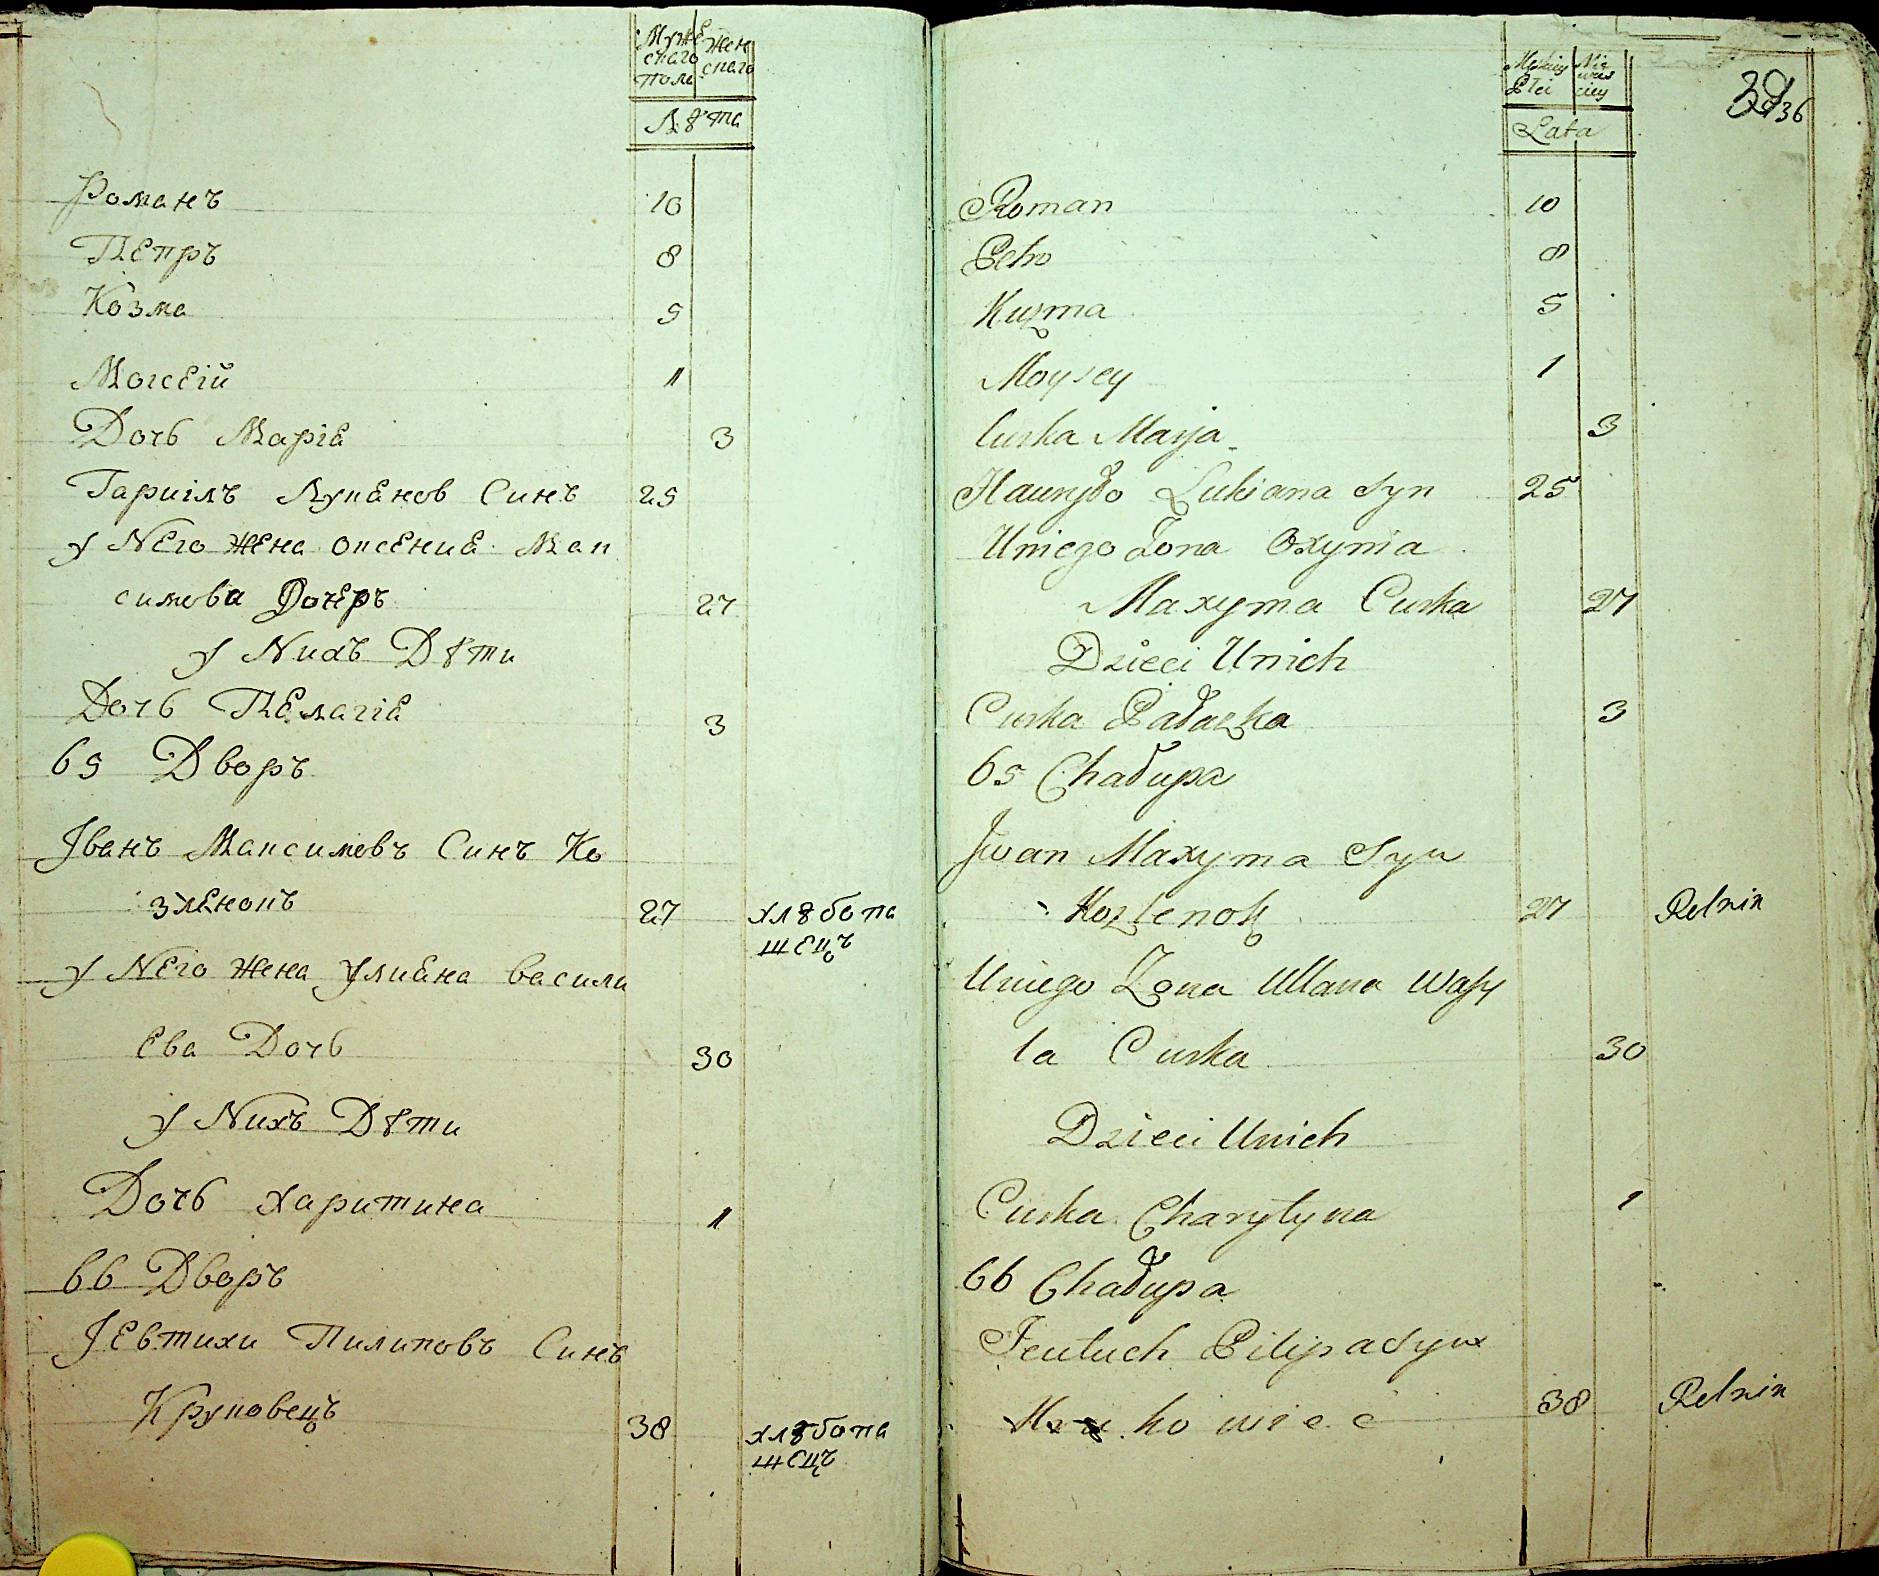 Мужескаго пола Женскаго
Лѣта
Романъ 10
Петръ 8
Козма 5
Моісей 1
Дочь Маріѣ 3
Гариілъ Лукѣнов Синъ 25
у Него Жена Оксениѣ Мак
симова Дочеръ 27
у Нихъ Дѣти
Дочь Пелагіѣ 3
65 Дворъ
Іванъ Максимовъ Синъ Ко
зленокъ 27 хлѣбопа
шецъ
у Него Жена Улиѣна васили
ева Дочь 30
у Нихъ Дѣти
Дочь харитина 1
66 Дворъ
Іевтихи Пилиповъ Синъ
Круковецъ 38 хлѣбопа
шецъ
Męskiey Płci Niewiesciey
36
Lata
Roman 10
Petro 8
Kuzma 5
Moysey 1
Curka Marja 3
Hauryło Lukiana Syn 25
Uniego Żona Oxynia
Maxyma Curka 27
Dzieci Unich
Curka Pałaszka 3
65 Chałupa
Jwan Maxyma Syn
Kozlenok 27 Rolnik
Uniego Żona Ullana Wasy
la Curka 30
Dzieci Unich
Curka Charytyna 1
66 Chałupa
Jeutuch Pilipa Syn
Krukowiec 38 Rolnik